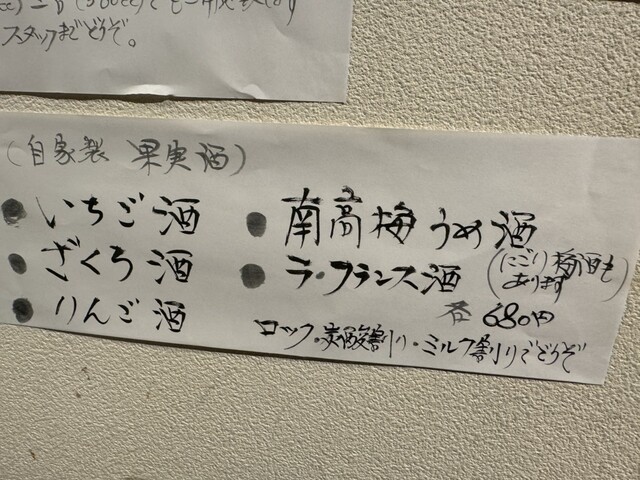 スタッフまでどうぞ。
(自家製 果実酒)
● いちご酒
● ざくろ酒
● りんご酒
● 南高梅 うめ酒
● ラ・フランス酒 (にごり梅酒も
あります)
各 680円
ロック・炭酸割り・ミルク割りでどうぞ